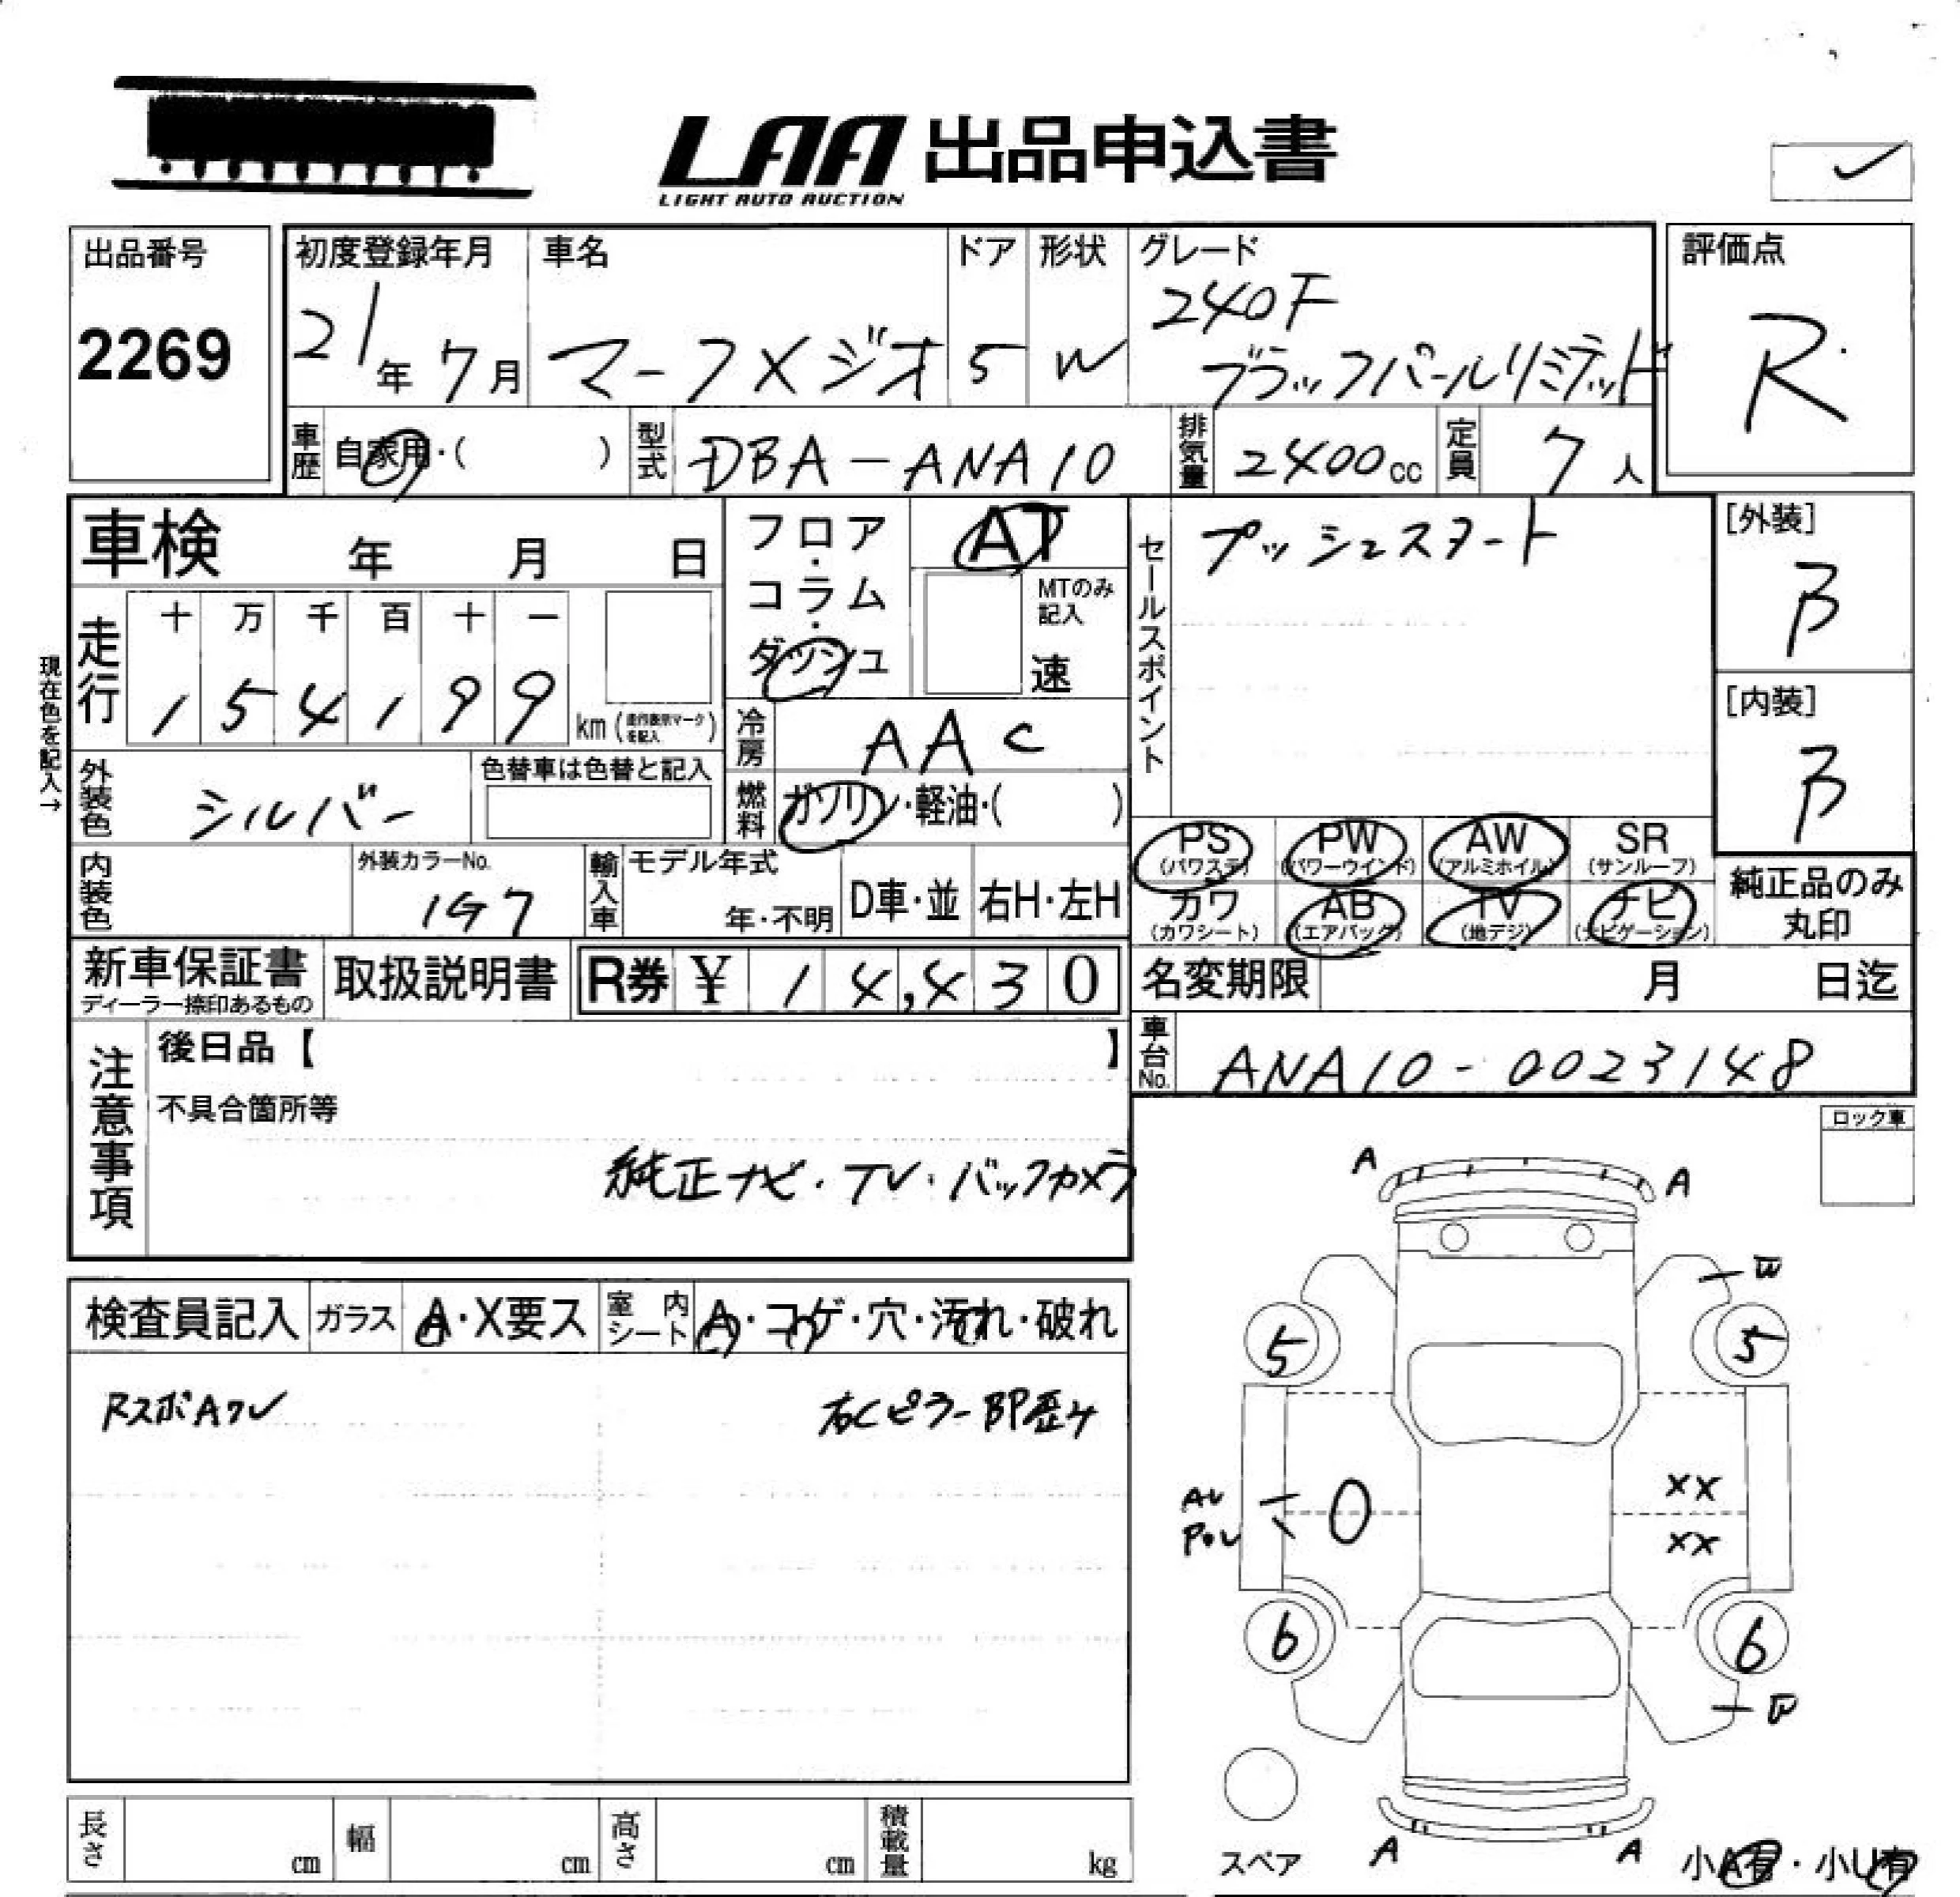 LAA 出品申込書
LIGHT AUTO AUCTION
出品番号
2269
初度登録年月
21年 7月
車名
マークXジオ
ドア
5
形状
W
グレード
240F
ブラックパールリミテッド
評価点
R
車歴 自家用・( )
型式 DBA-ANA10
排気量 2400cc
定員 7人
車検 年 月 日
フロア・コラム・ダッシュ
AT
MTのみ記入
速
セールスポイント
プッシュスタート
[外装]
B
[内装]
B
現在色を記入→
走行
十 万 千 百 十 一
1 5 4 1 9 9 km
冷房 AAC
外装色 シルバー
色替車は色替と記入
燃料 ガソリン・軽油・( )
内装色
外装カラーNo.
1G7
輸入車
モデル年式
年・不明
D車・並
右H・左H
PS (パワステ)
PW (パワーウインド)
AW (アルミホイル)
SR (サンルーフ)
カワ (カワシート)
AB (エアバック)
TV (地デジ)
ナビ (ナビゲーション)
純正品のみ丸印
新車保証書
ディーラー捺印あるもの
取扱説明書
R券 ¥ 14,430
名変期限 月 日迄
車台No. ANA10-0023148
注意事項
後日品【 】
不具合箇所等
純正ナビ・TV・バックカメラ
ロック車
検査員記入
ガラス A・X要ス
室内シート A・コゲ・穴・汚れ・破れ
RスポAワレ
右Cピラー BP歴有
A A
W
5 5
AU
XX
XX
6 6
A A
スペア
小A有・小U有
長さ cm
幅 cm
高さ cm
積載量 kg